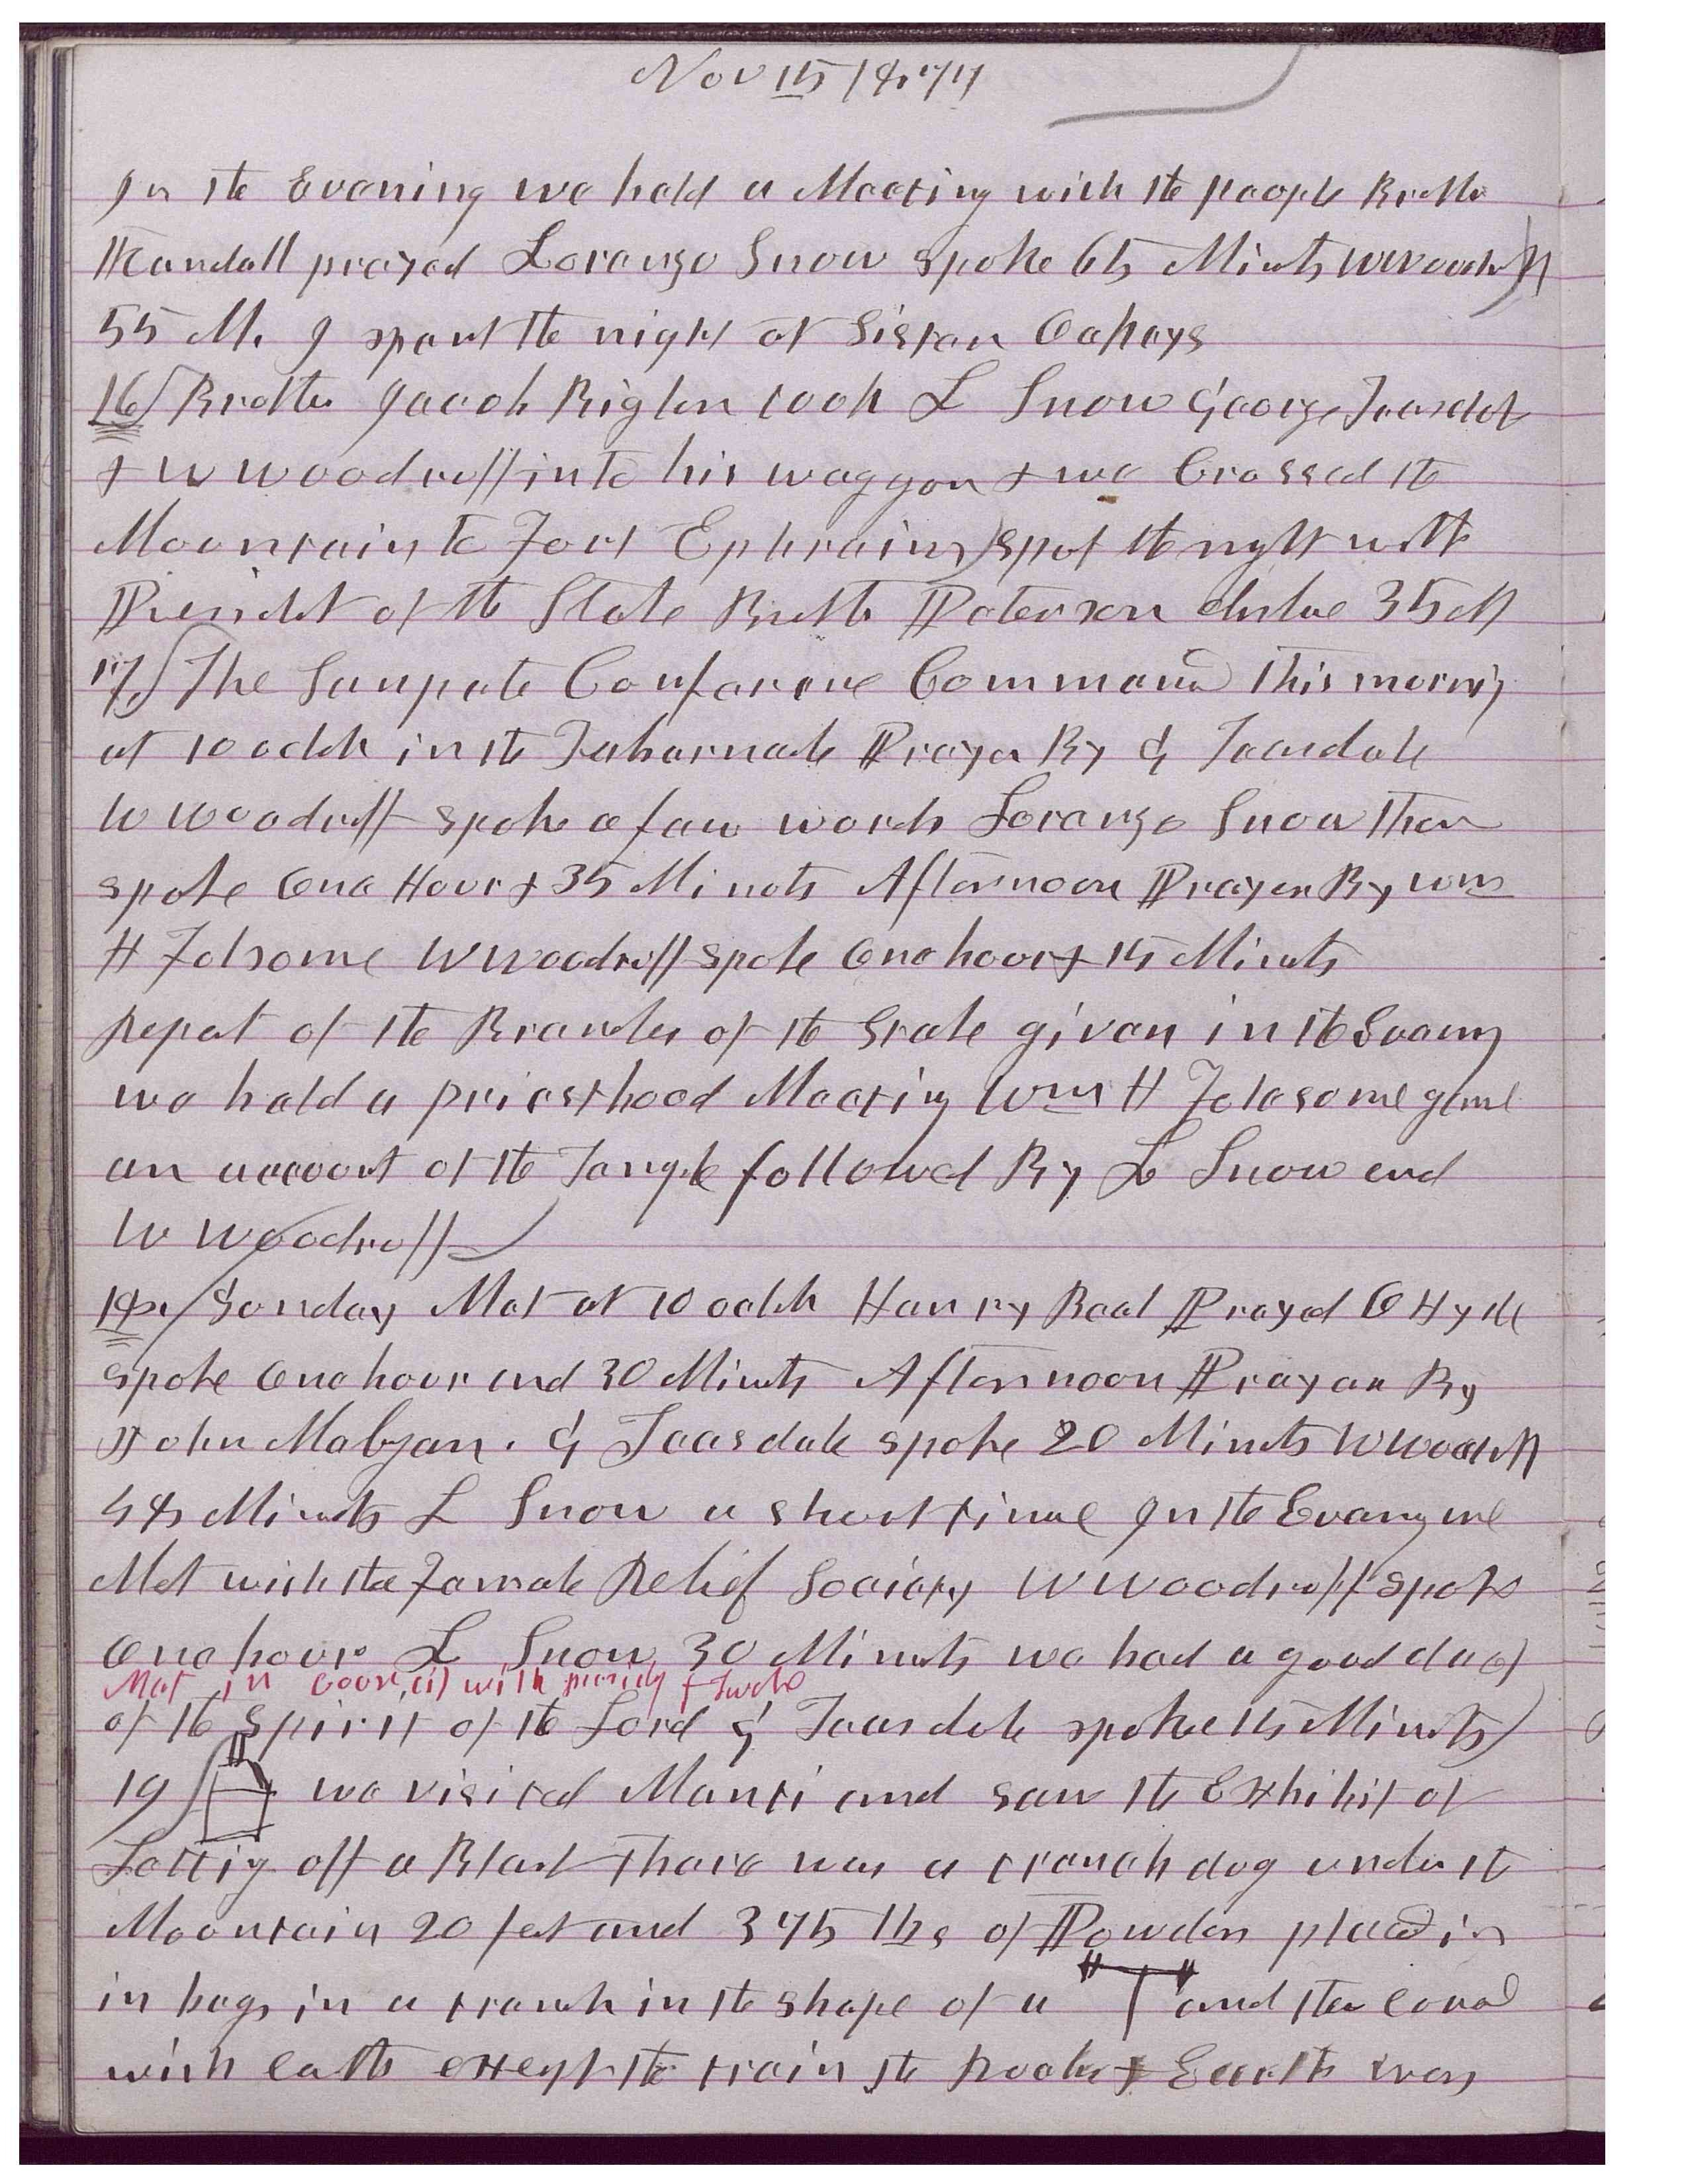 Nov 15 1877
In the Evening we held a Meeting with the people Brother
Kendall prayed Lorenzo Snow spoke 65 Minuts W Woodruff
55 M. I spent the night at Sister Oakeys
16 Brother Jacob Bigler took L Snow George Teasdale
+ W Woodruff into his waggon + we Crossed the
Mountain to Fort Ephraim spet the night with
President of the Stake Brother Peterson distance 35 M
17 The Sanpete Conference Commenced This morning
at 10 oclok in the Tabernacle Prayer By G Teasdale
W Woodruff spoke a few words Lorenzo Snow then
spoke One Hour + 35 Minuts Afternoon Prayer By Wm
H Folsome W Woodruff spoke One hour + 15 Minuts
Report of the Branches of the Stake given in the Evening
we held a priesthood Meeting Wm H Folesome gave
an account of the Temple followed By L Snow and
W Woodruff
18 Sunday Met at 10 oclok Henry Beal Prayed O Hyde
spoke One hour and 30 Minuts Afternoon Prayer By
John Mabyan. G Teasdale spoke 20 Minuts W Woodruff
48 Minuts L Snow a short time In the Evening we
Met with the Female Relief Society W Woodruff spoke
One hour L Snow 30 Minuts we had a good deal
Met in Council with Presidy + Twelve
of the Spirit of the Lord G Teasdale spoke 15 Minuts
19 we visited Manti and saw the Exhibit of
Letting off a Blast There was a trench dug under the
Mountain 20 feet and 375 lbs of Powder placed in
in bags in a trench in the shape of a T and then coverd
with earth except the train the Rocks + Earth was